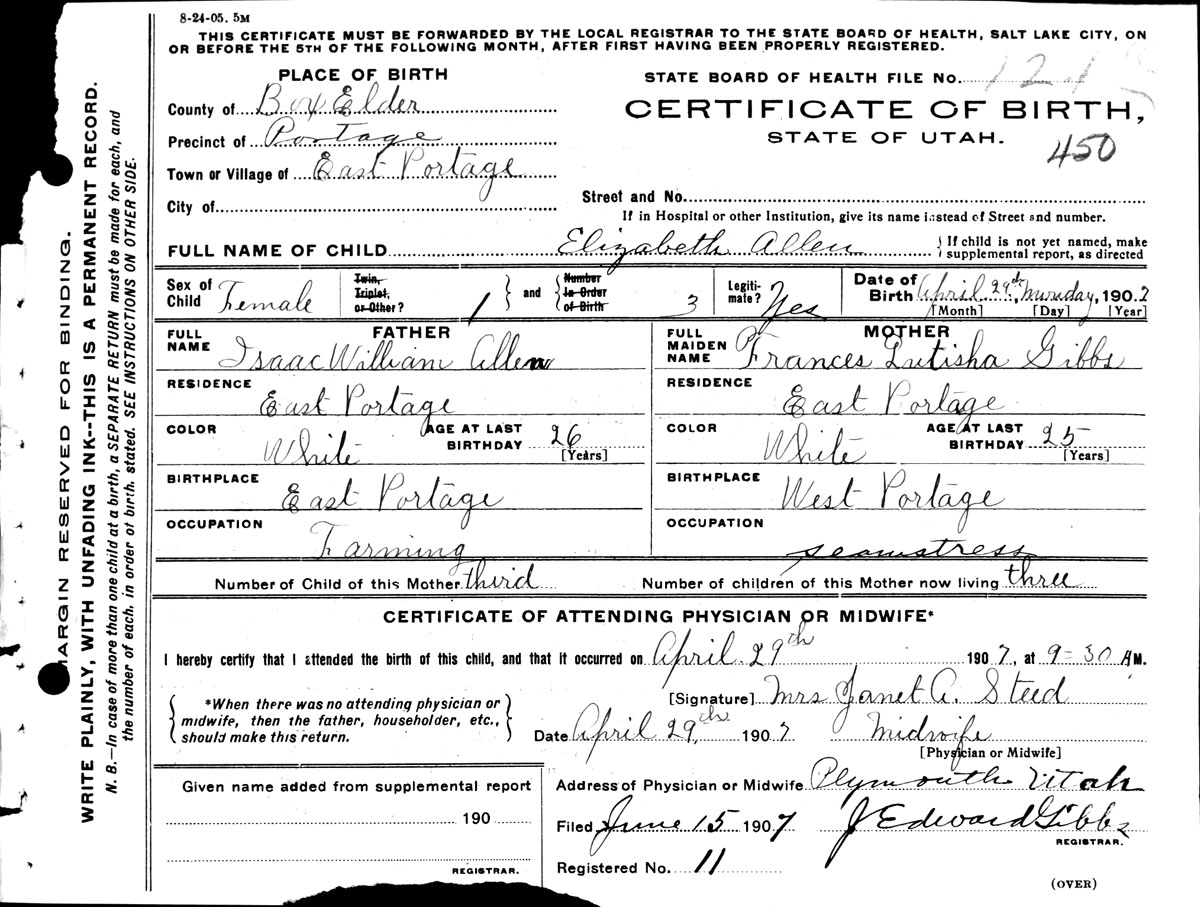 8-24-05. 5M
THIS CERTIFICATE MUST BE FORWARDED BY THE LOCAL REGISTRAR TO THE STATE BOARD OF HEALTH, SALT LAKE CITY, ON
OR BEFORE THE 5TH OF THE FOLLOWING MONTH, AFTER FIRST HAVING BEEN PROPERLY REGISTERED.
MARGIN RESERVED FOR BINDING.
WRITE PLAINLY, WITH UNFADING INK--THIS IS A PERMANENT RECORD.
N. B.—In case of more than one child at a birth, a SEPARATE RETURN must be made for each, and
the number of each, in order of birth, stated. SEE INSTRUCTIONS ON OTHER SIDE.
PLACE OF BIRTH
County of Box Elder
Precinct of Portage
Town or Village of East Portage
City of
STATE BOARD OF HEALTH FILE No.
CERTIFICATE OF BIRTH,
STATE OF UTAH.
450
Street and No.
If in Hospital or other Institution, give its name instead of Street and number.
FULL NAME OF CHILD Elizabeth Allen
If child is not yet named, make
supplemental report, as directed
Sex of Child Female
Twin, Triplet, or Other? 1
and
Number In Order of Birth 3
Legiti-mate? Yes
Date of Birth April 29th, Munday, 1907
[Month] [Day] [Year]
FATHER
FULL NAME Isaac William Allen
RESIDENCE
East Portage
COLOR White AGE AT LAST BIRTHDAY 26 [Years]
BIRTHPLACE
East Portage
OCCUPATION
Farming
MOTHER
FULL MAIDEN NAME Frances Lutisha Gibbs
RESIDENCE
East Portage
COLOR White AGE AT LAST BIRTHDAY 25 [Years]
BIRTHPLACE
West Portage
OCCUPATION
seamstress
Number of Child of this Mother third Number of children of this Mother now living three
CERTIFICATE OF ATTENDING PHYSICIAN OR MIDWIFE*
I hereby certify that I attended the birth of this child, and that it occurred on April 29th 1907, at 9=30 AM.
*When there was no attending physician or
midwife, then the father, householder, etc.,
should make this return.
[Signature] Mrs Janet A. Steed
Date April 29th 1907 Midwife
[Physician or Midwife]
Given name added from supplemental report
190
REGISTRAR.
Address of Physician or Midwife Plymouth Utah
Filed June 15 1907 J Edward Gibbs
REGISTRAR.
Registered No. 11
(OVER)